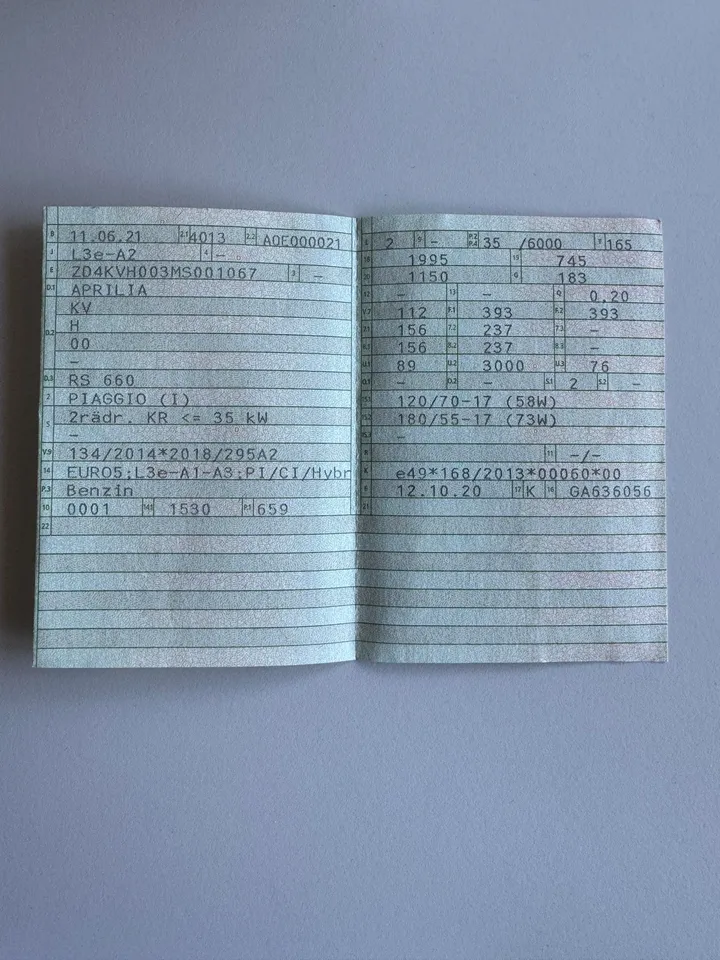 B 11.06.21 2.1 4013 2.2 AOE000021
J L3e-A2 4 -
E ZD4KVH003MS001067 3 -
D.1 APRILIA
KV
H
D.2 00
-
D.3 RS 660
2 PIAGGIO (I)
5 2rädr. KR <= 35 kW
-
V.9 134/2014*2018/295A2
14 EURO5;L3e-A1-A3;PI/CI/Hybr
P.3 Benzin
10 0001 14.1 1530 P.1 659
22
L 2 9 - P.2 P.4 35 /6000 T 165
18 1995 19 745
20 1150 G 183
12 - 13 - Q 0,20
V.7 112 F.1 393 F.2 393
7.1 156 7.2 237 7.3 -
8.1 156 8.2 237 8.3 -
U.1 89 U.2 3000 U.3 76
O.1 - O.2 - S.1 2 S.2 -
15.1 120/70-17 (58W)
15.2 180/55-17 (73W)
15.3 -
R 11 -/-
K e49*168/2013*00060*00
6 12.10.20 17 K 16 GA636056
21